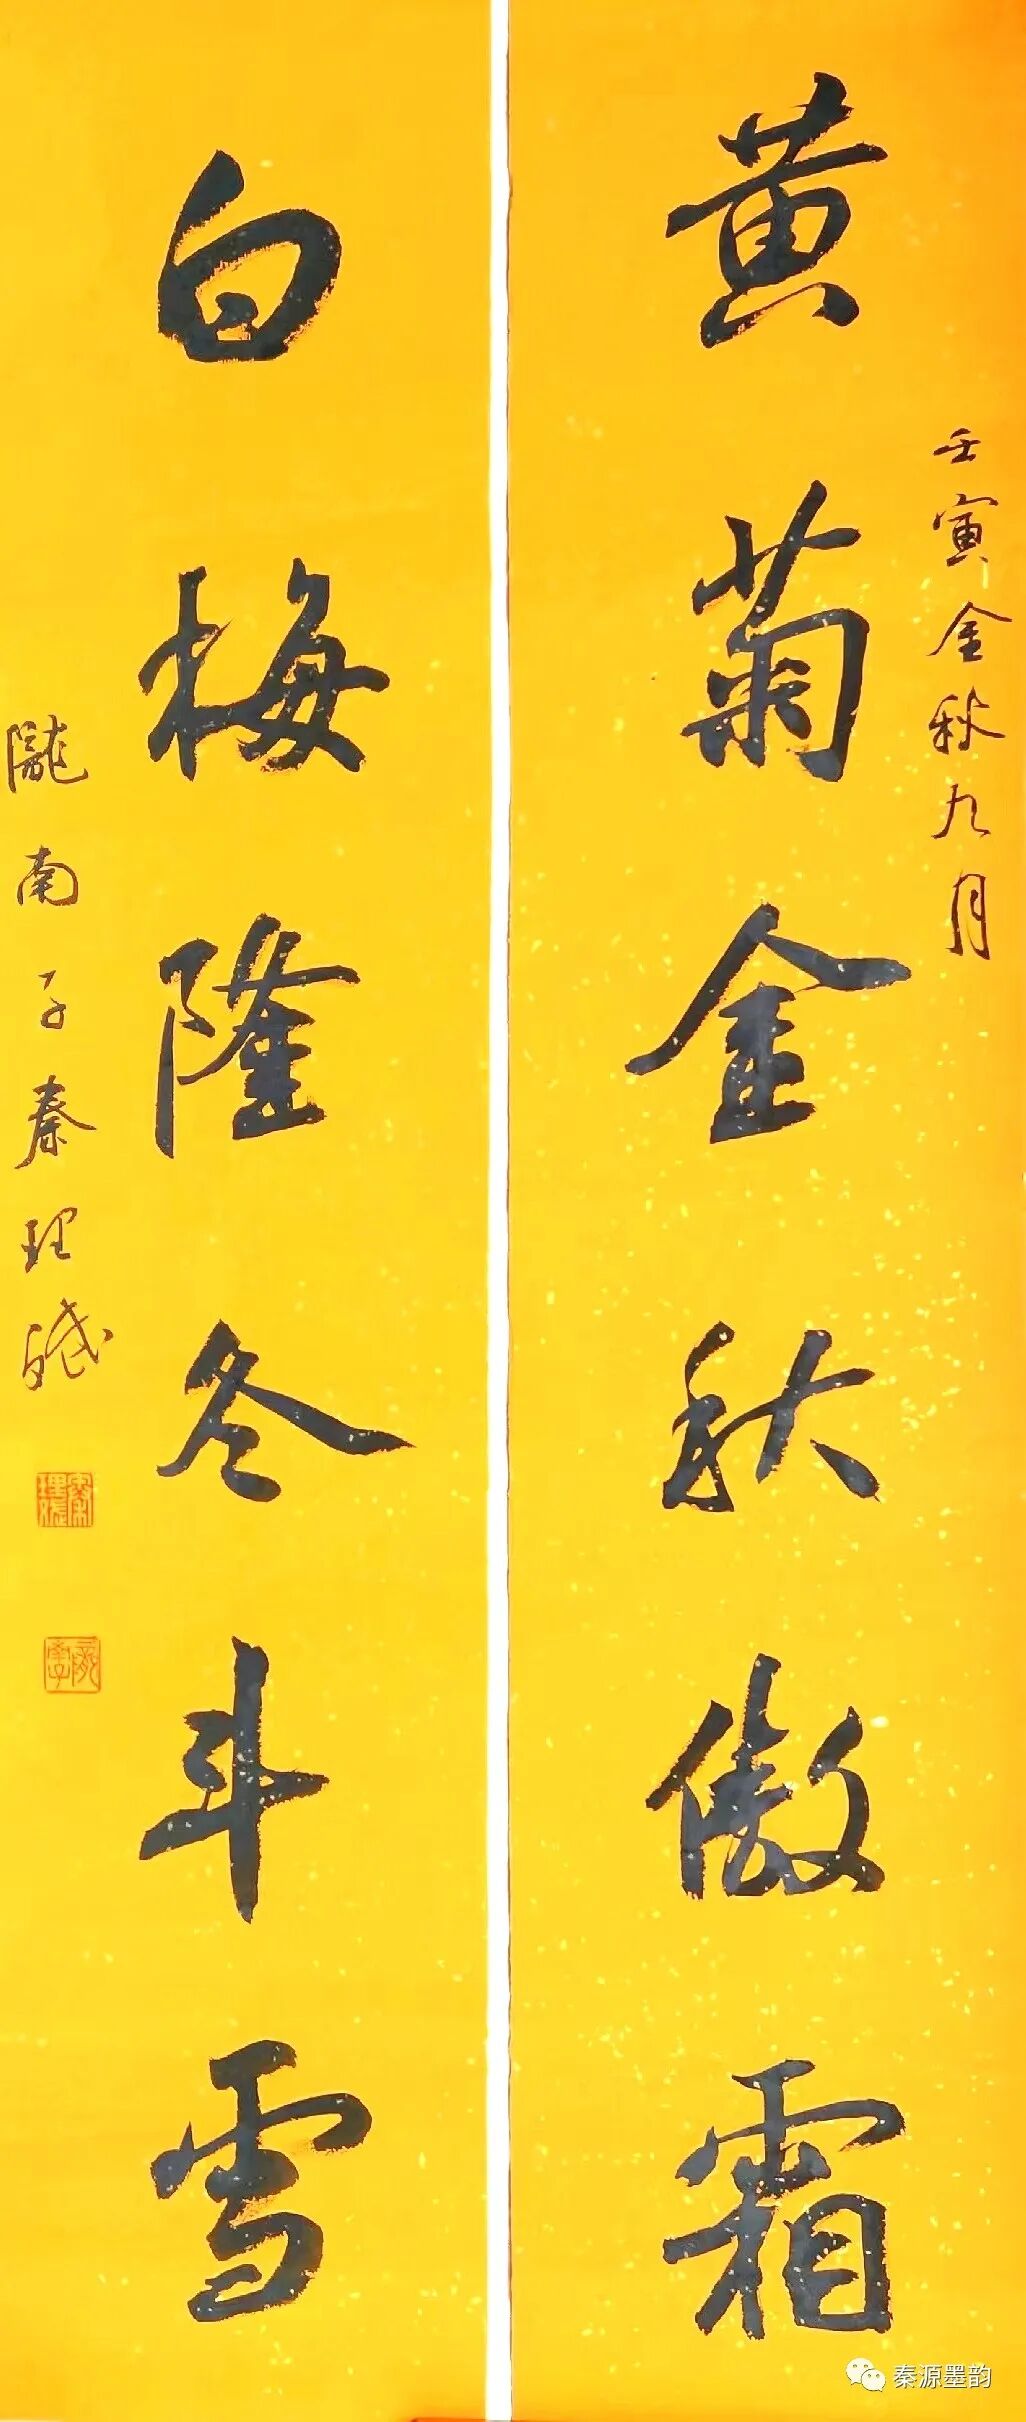 壬寅金秋九月
黄菊金秋傲霜
白梅隆冬斗雪
隴南子秦理
秦理
秦源墨韵